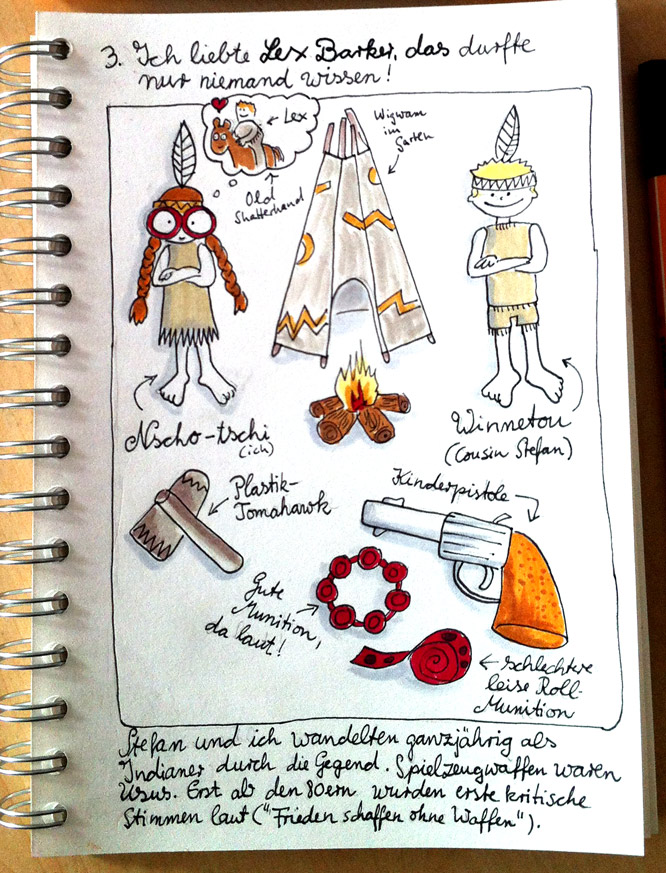 3. Ich liebte Lex Barker, das durfte
nur niemand wissen!
Lex
Old
Shatterhand
Wigwam
im
Garten
Nscho-tschi
(ich)
Winnetou
(Cousin Stefan)
Plastik-
Tomahawk
Kinderpistole
Gute
Munition,
da laut!
schlechtere
leise Roll-
Munition
Stefan und ich wandelten ganzjährig als
Indianer durch die Gegend. Spielzeugwaffen waren
Usus. Erst ab den 80ern wurden erste kritische
Stimmen laut ("Frieden schaffen ohne Waffen").